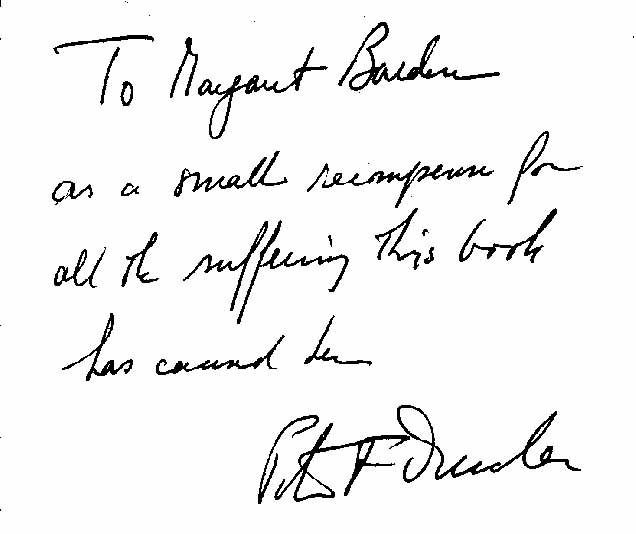 To Margaret
as a small recompense for
all the suffering this book
has caused her
Peter F Drucker